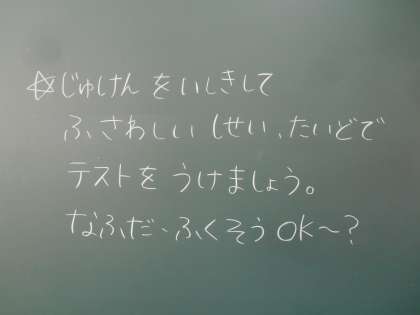 ☆じゅけんをいしきして
ふさわしいしせい、たいどで
テストをうけましょう。
なふだ、ふくそうOK～?